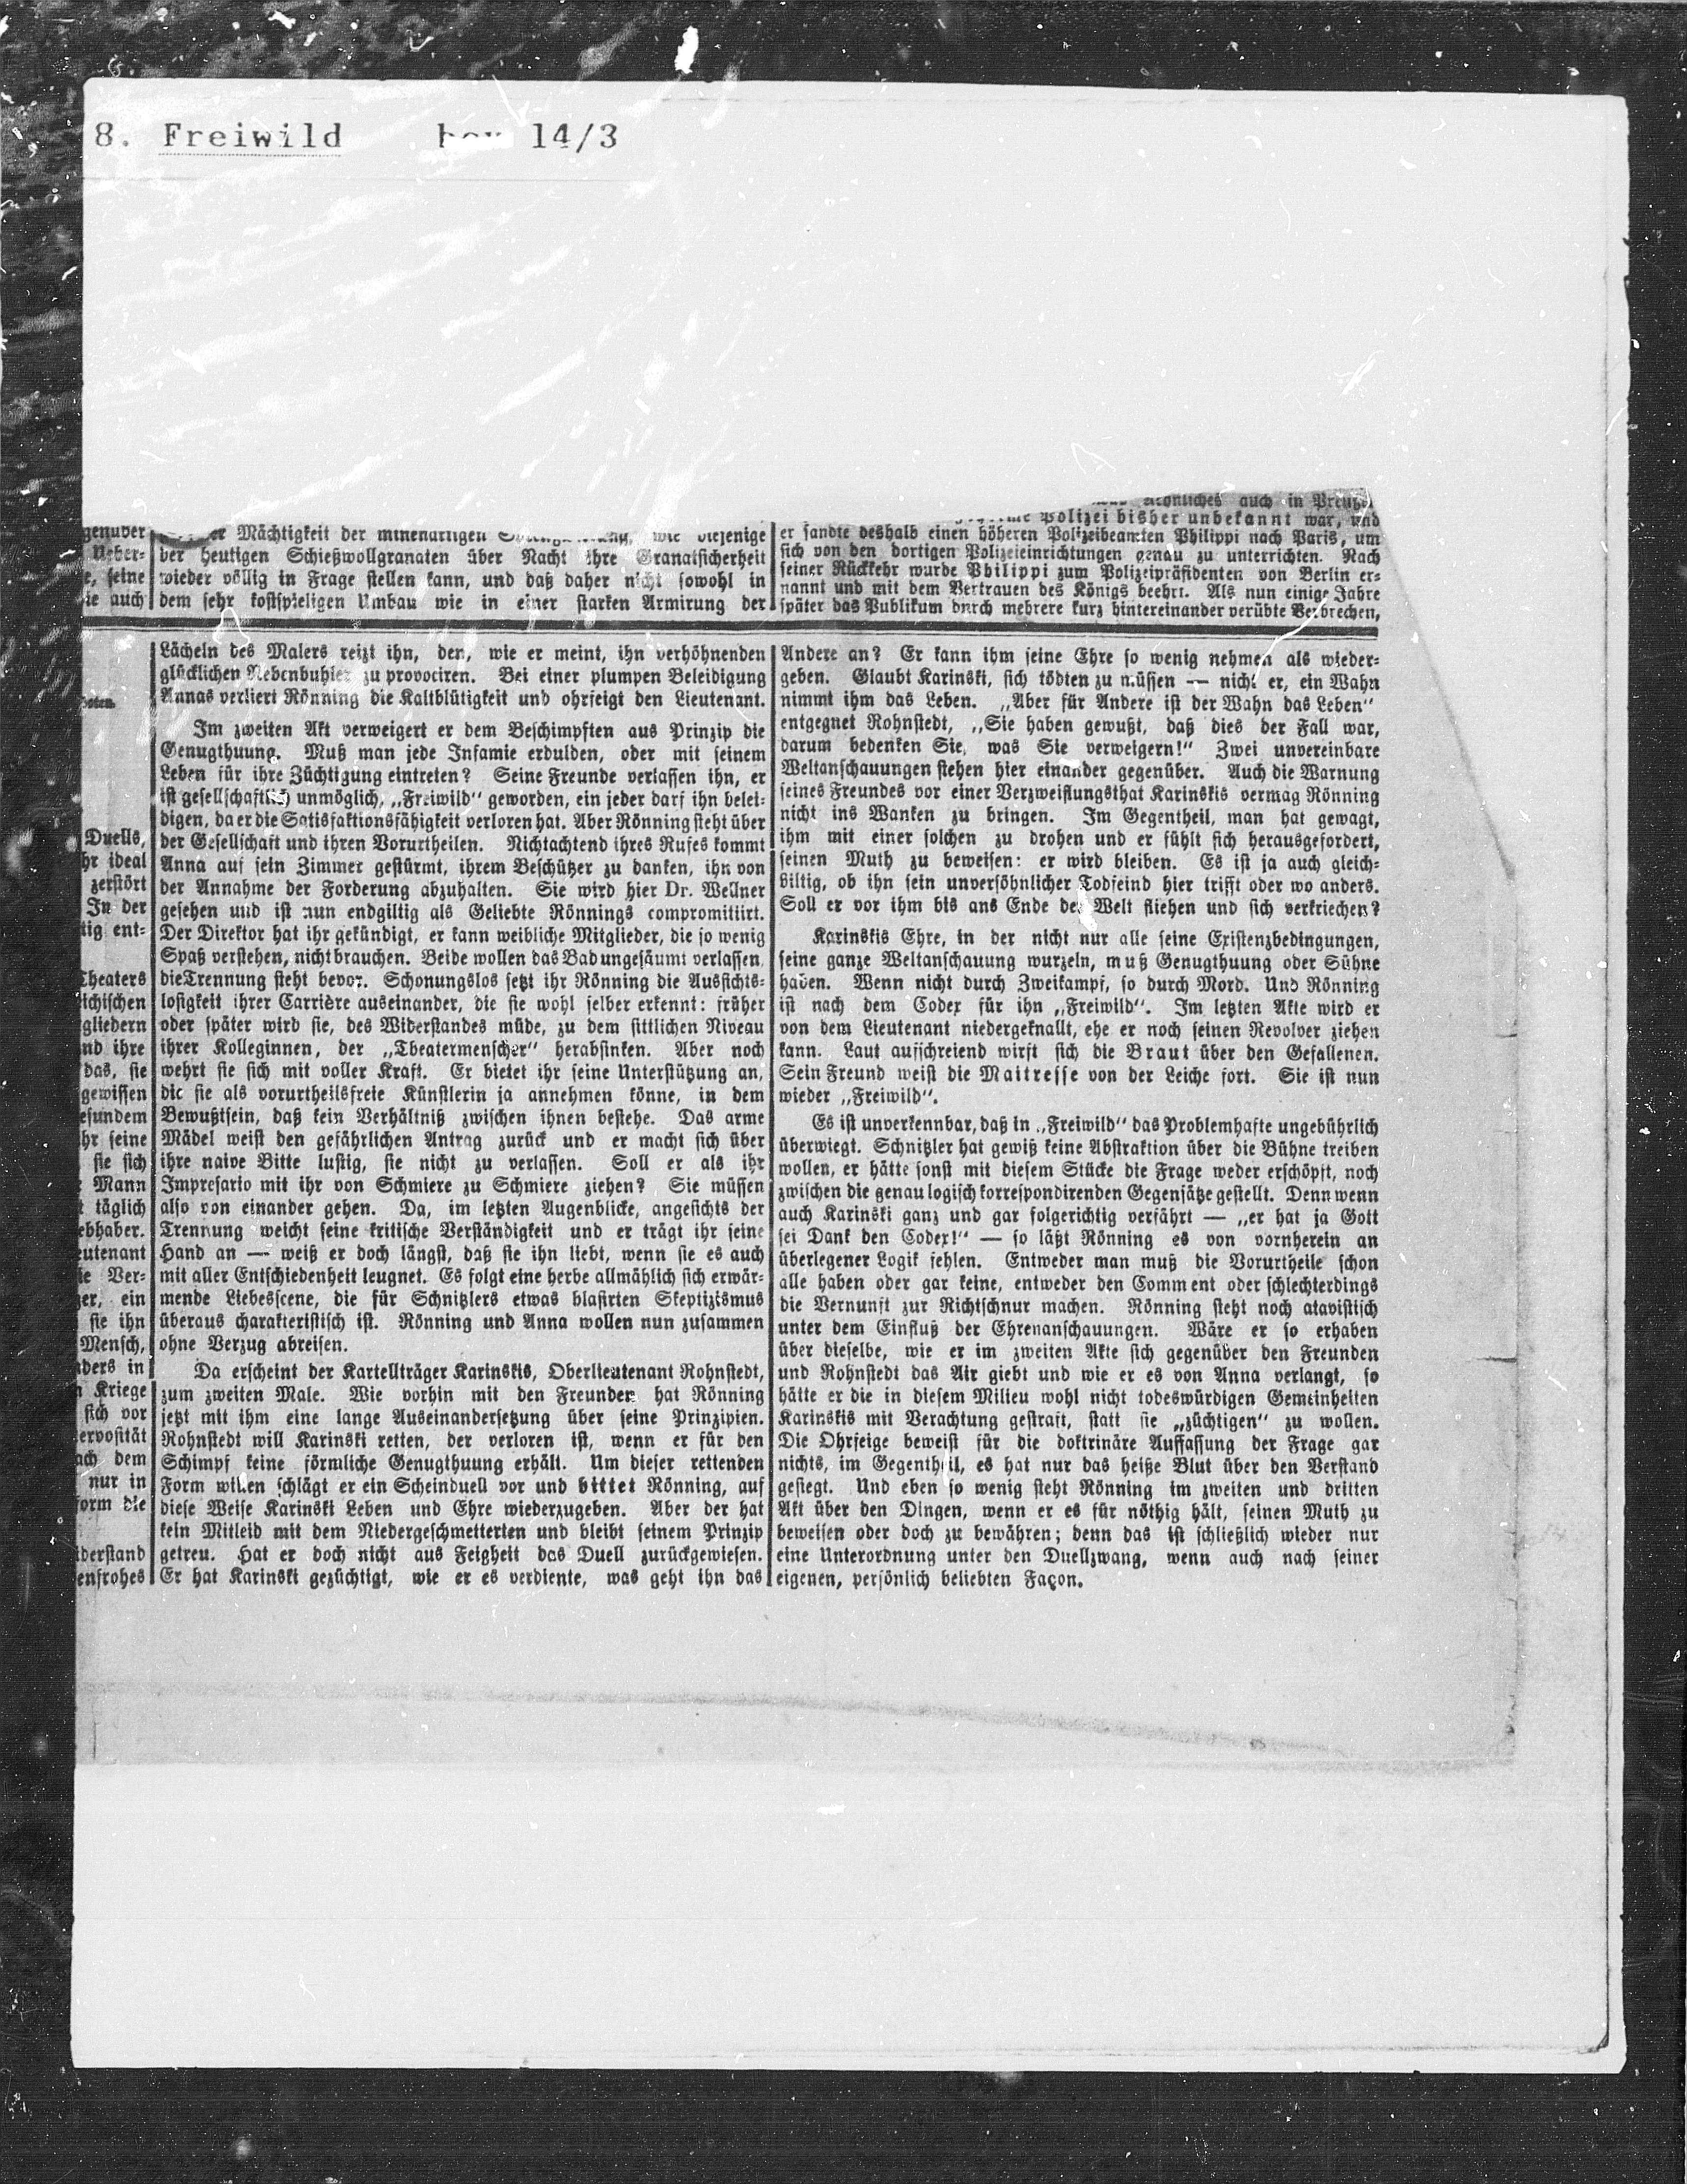 8. Freiwild box 14/3
genüber
Ueber-
e, seine
ie auch
Mächtigkeit der minenartigen wie diejenige
der heutigen Schießwollgranaten über Nacht ihre Granatsicherheit
wieder völlig in Frage stellen kann, und daß daher nicht sowohl in
dem sehr kostspieligen Umbau wie in einer starken Armirung der
auch in
Polizei bisher unbekannt war, und
er sandte deshalb einen höheren Polizeibeamten Philippi nach Paris, um
sich von den dortigen Polizeieinrichtungen genau zu unterrichten. Nach
seiner Rückkehr wurde Philippi zum Polizeipräsidenten von Berlin er-
nannt und mit dem Vertrauen des Königs beehrt. Als nun einige Jahre
später das Publikum durch mehrere kurz hintereinander verübte Verbrechen,
Duells,
hr ideal
zerstört
In der
tig ent-
Theaters
ichischen
gliedern
nd ihre
das, sie
gewissen
esundem
hr seine
sie sich
Mann
täglich
ebhaber.
eutenant
ie Ver-
er, ein
sie ihn
Mensch,
ders in
Kriege
sich vor
ervosität
ach dem
nur in
form die
derstand
enfrohes
Lächeln des Malers reizt ihn, den, wie er meint, ihn verhöhnenden
glücklichen Nebenbuhler zu provociren. Bei einer plumpen Beleidigung
Annas verliert Rönning die Kaltblütigkeit und ohrfeigt den Lieutenant.
Im zweiten Akt verweigert er dem Beschimpften aus Prinzip die
Genugthuung. Muß man jede Infamie erdulden, oder mit seinem
Leben für ihre Züchtigung eintreten? Seine Freunde verlassen ihn, er
ist gesellschaftlich unmöglich, „Freiwild“ geworden, ein jeder darf ihn belei-
digen, da er die Satisfaktionsfähigkeit verloren hat. Aber Rönning steht über
der Gesellschaft und ihren Vorurtheilen. Nichtachtend ihres Rufes kommt
Anna auf sein Zimmer gestürmt, ihrem Beschützer zu danken, ihn von
der Annahme der Forderung abzuhalten. Sie wird hier Dr. Wellner
gesehen und ist nun endgiltig als Geliebte Rönnings compromitiirt.
Der Direktor hat ihr gekündigt, er kann weibliche Mitglieder, die so wenig
Spaß verstehen, nicht brauchen. Beide wollen das Bad ungesäumt verlassen,
die Trennung steht bevor. Schonungslos setzt ihr Rönning die Aussichts-
losigkeit ihrer Carrière auseinander, die sie wohl selber erkennt: früher
oder später wird sie, des Widerstandes müde, zu dem sittlichen Niveau
ihrer Kolleginnen, der „Theatermenscher“ herabsinken. Aber noch
wehrt sie sich mit voller Kraft. Er bietet ihr seine Unterstützung an,
die sie als vorurtheilsfreie Künstlerin ja annehmen könne, in dem
Bewußtsein, daß kein Verhältniß zwischen ihnen bestehe. Das arme
Mädel weist den gefährlichen Antrag zurück und er macht sich über
ihre naive Bitte lustig, sie nicht zu verlassen. Soll er als ihr
Impresario mit ihr von Schmiere zu Schmiere ziehen? Sie müssen
also von einander gehen. Da, im letzten Augenblicke, angesichts der
Trennung weicht seine kritische Verständigkeit und er trägt ihr seine
Hand an — weiß er doch längst, daß sie ihn liebt, wenn sie es auch
mit aller Entschiedenheit leugnet. Es folgt eine herbe allmählich sich erwär-
mende Liebesscene, die für Schnitzlers etwas blasirten Skeptizismus
überaus charakteristisch ist. Rönning und Anna wollen nun zusammen
ohne Verzug abreisen.
Da erscheint der Kartellträger Karinskis, Oberlieutenant Rohnstedt,
zum zweiten Male. Wie vorhin mit den Freunden hat Rönning
jetzt mit ihm eine lange Auseinandersetzung über seine Prinzipien.
Rohnstedt will Karinski retten, der verloren ist, wenn er für den
Schimpf keine förmliche Genugthuung erhält. Um dieser rettenden
Form willen schlägt er ein Scheinduell vor und bittet Rönning, auf
diese Weise Karinski Leben und Ehre wiederzugeben. Aber der hat
kein Mitleid mit dem Niedergeschmetterten und bleibt seinem Prinzip
getreu. Hat er doch nicht aus Feigheit das Duell zurückgewiesen.
Er hat Karinski gezüchtigt, wie er es verdiente, was geht ihn das
Andere an? Er kann ihm seine Ehre so wenig nehmen als wieder-
geben. Glaubt Karinski, sich tödten zu müssen — nicht er, ein Wahn
nimmt ihm das Leben. „Aber für Andere ist der Wahn das Leben“
entgegnet Rohnstedt, „Sie haben gewußt, daß dies der Fall war,
darum bedenken Sie, was Sie verweigern!“ Zwei unvereinbare
Weltanschauungen stehen hier einander gegenüber. Auch die Warnung
seines Freundes vor einer Verzweiflungsthat Karinskis vermag Rönning
nicht ins Wanken zu bringen. Im Gegentheil, man hat gewagt,
ihm mit einer solchen zu drohen und er fühlt sich herausgefordert,
seinen Muth zu beweisen: er wird bleiben. Es ist ja auch gleich-
giltig, ob ihn sein unversöhnlicher Todfeind hier trifft oder wo anders.
Soll er vor ihm bis ans Ende der Welt fliehen und sich verkriechen?
Karinskis Ehre, in der nicht nur alle seine Existenzbedingungen,
seine ganze Weltanschauung wurzeln, muß Genugthuung oder Sühne
haben. Wenn nicht durch Zweikampf, so durch Mord. Und Rönning
ist nach dem Codex für ihn „Freiwild“. Im letzten Akte wird er
von dem Lieutenant niedergeknallt, ehe er noch seinen Revolver ziehen
kann. Laut aufschreiend wirft sich die Braut über den Gefallenen.
Sein Freund weist die Maitresse von der Leiche fort. Sie ist nun
wieder „Freiwild“.
Es ist unverkennbar, daß in „Freiwild“ das Problemhafte ungebührlich
überwiegt. Schnitzler hat gewiß keine Abstraktion über die Bühne treiben
wollen, er hätte sonst mit diesem Stücke die Frage weder erschöpft, noch
zwischen die genau logisch korrespondirenden Gegensätze gestellt. Denn wenn
auch Karinski ganz und gar folgerichtig verfährt — „er hat ja Gott
sei Dank den Codex!“ — so läßt Rönning es von vornherein an
überlegener Logik fehlen. Entweder man muß die Vorurtheile schon
alle haben oder gar keine, entweder den Comment oder schlechterdings
die Vernunft zur Richtschnur machen. Rönning steht noch atavistisch
unter dem Einfluß der Ehrenanschauungen. Wäre er so erhaben
über dieselbe, wie er im zweiten Akte sich gegenüber den Freunden
und Rohnstedt das Air giebt und wie er es von Anna verlangt, so
hätte er die in diesem Milieu wohl nicht todeswürdigen Gemeinheiten
Karinskis mit Verachtung gestraft, statt sie „züchtigen“ zu wollen.
Die Ohrfeige beweist für die doktrinäre Auffassung der Frage gar
nichts, im Gegentheil, es hat nur das heiße Blut über den Verstand
gesiegt. Und eben so wenig steht Rönning im zweiten und dritten
Akt über den Dingen, wenn er es für nöthig hält, seinen Muth zu
beweisen oder doch zu bewähren; denn das ist schließlich wieder nur
eine Unterordnung unter den Duellzwang, wenn auch nach seiner
eigenen, persönlich beliebten Façon.